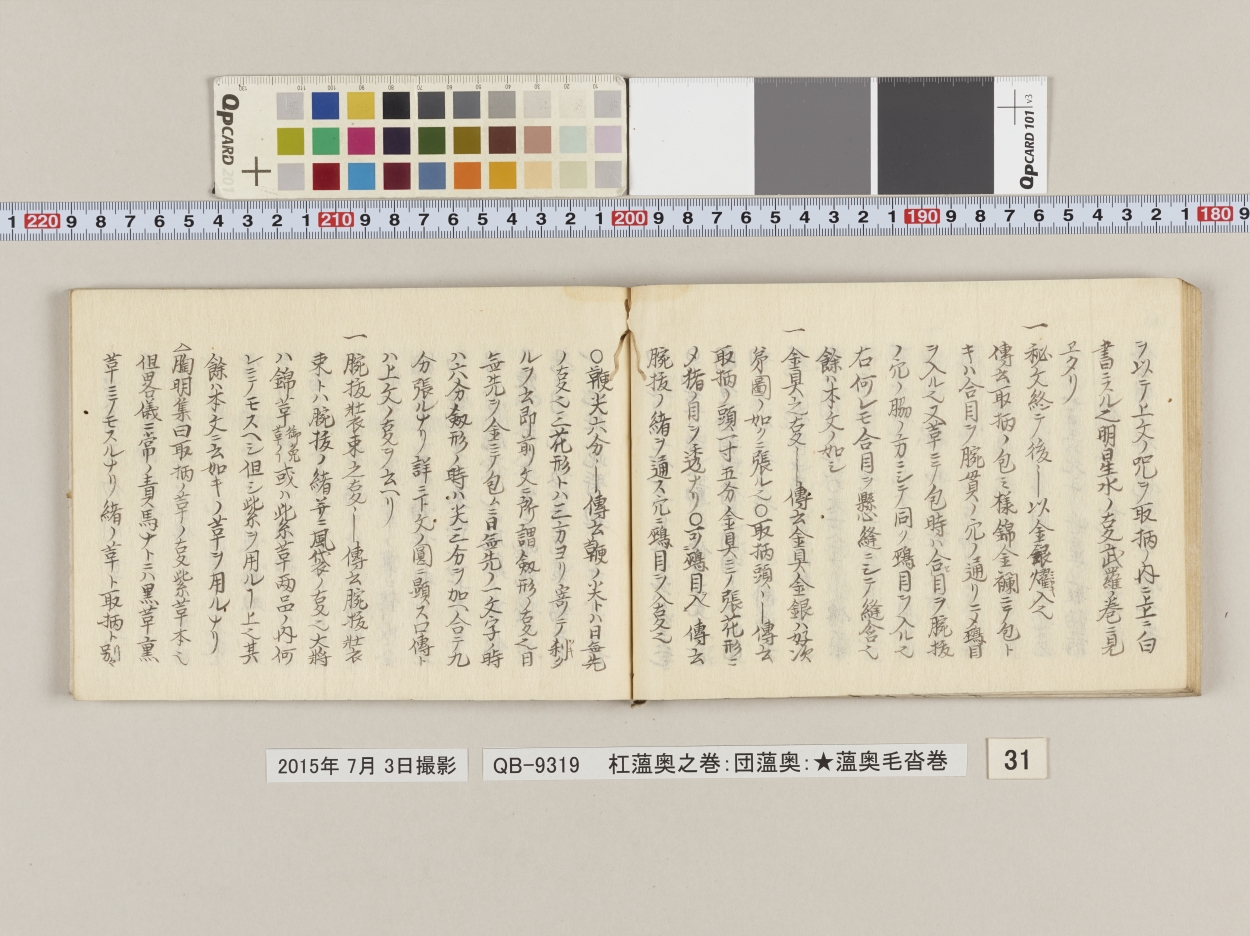 QpCARD 201
QpCARD 101 v3
1 220 9 8 7 6 5 4 3 2 1 210 9 8 7 6 5 4 3 2 1 200 9 8 7 6 5 4 3 2 1 190 9 8 7 6 5 4 3 2 1 180 9
ヲ以テ上文ノ呪ヲ取柄ノ内ニ立ニ白
書ニスル也明星水ノ事武羅ノ巻ニ見
ヱタリ
一 秘文終テ後ー以金銀燿入ヘ
傳云取柄ノ包ミ樣錦金襴ニテ包ト
キハ合目ヲ腕貫ノ穴ノ通リニメ鵐目
ヲ入ル也又革ニテ包時ハ合目ヲ腕抜
ノ穴ノ脇ノ方ニシテ同ク鵐目ヲ入ル也
右何レモ合目ヲ懸縫ニシテ縫含也
餘ハ本文ノ如シ
一 金具之事ー傳云金具金銀ハ好次
第圖ノ如クニ張ル也〇取柄頭ハー傳云
取柄ノ頭一寸五分金具ニテ張花形ニ
メ猪ノ目ヲ透ナリ〇可鵐目入ー傳云
腕抜ノ緒ヲ通ス穴ニ鵐目ヲ入事也
〇鞭尖六分ー傳云鞭ノ尖トハ日無先
ノ事也三花形トハ三方ヨリ寄ツテ利ク
ルヲ云即前文ニ所謂劔形ノ事也日
無先ヲ金ニテ包ム日無先ノ一文字ノ時
ハ六分劔形ノ時ハ尖三分ヲ加ヘ合テ九
分張ルナリ詳ニ下文ノ圖ニ顕ス口傳ト
ハ上文ノ事ヲ云ヘリ
一 腕抜壮衣束之事ー傳云腕抜壮衣
束トハ腕抜ノ緒并ニ風袋ノ事也大將
ハ錦革御免革ノ或ハ紫革兩品ノ内何
レニテモスヘシ但シ紫ヲ用ルー上也其
餘ハ本文ニ云如キノ革ヲ用ルナリ
胸明集曰取柄ノ革ノ事紫革本也
但畧儀ニ常ノ責馬ナトニハ黒革熏
革ニテモスルナリ緒ノ革ト取柄ト別
2015年 7月 3日撮影
QB-9319 杠薀奥之巻:団薀奥:★薀奥毛沓巻
31